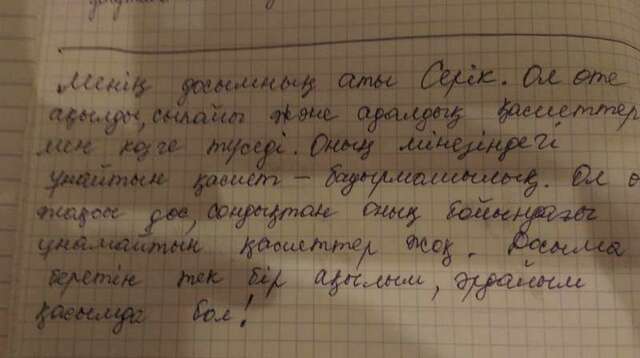 Менің досымның аты Серік. Ол өте
ақылды, сыпайы және адалдық қасиеттер
мен көзге түседі. Оның мінезіндегі
ұнайтын қасиет – бауырмашылық. Ол ө
жақсы дос, сондықтан оның бойындағы
ұнамайтын қасиеттер жоқ. Досыма
беретін тек бір ақылым, әрдайым
қасымда бол!